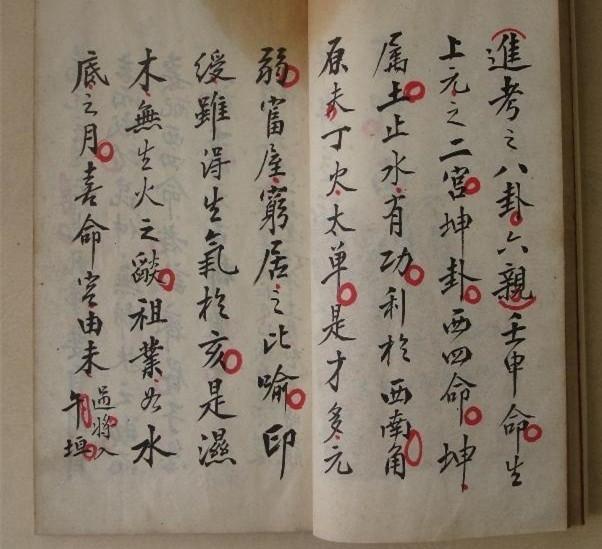 進考之八卦六親壬申命生
上元之二宮坤卦西四命坤
属土止水有功利於西南角
原未丁火太单是才多元
弱富屋窮居之比喻印
绶雖得生氣於亥是濕
木無生火之燄祖業如水
底之月喜命宮由未過將入
午垣